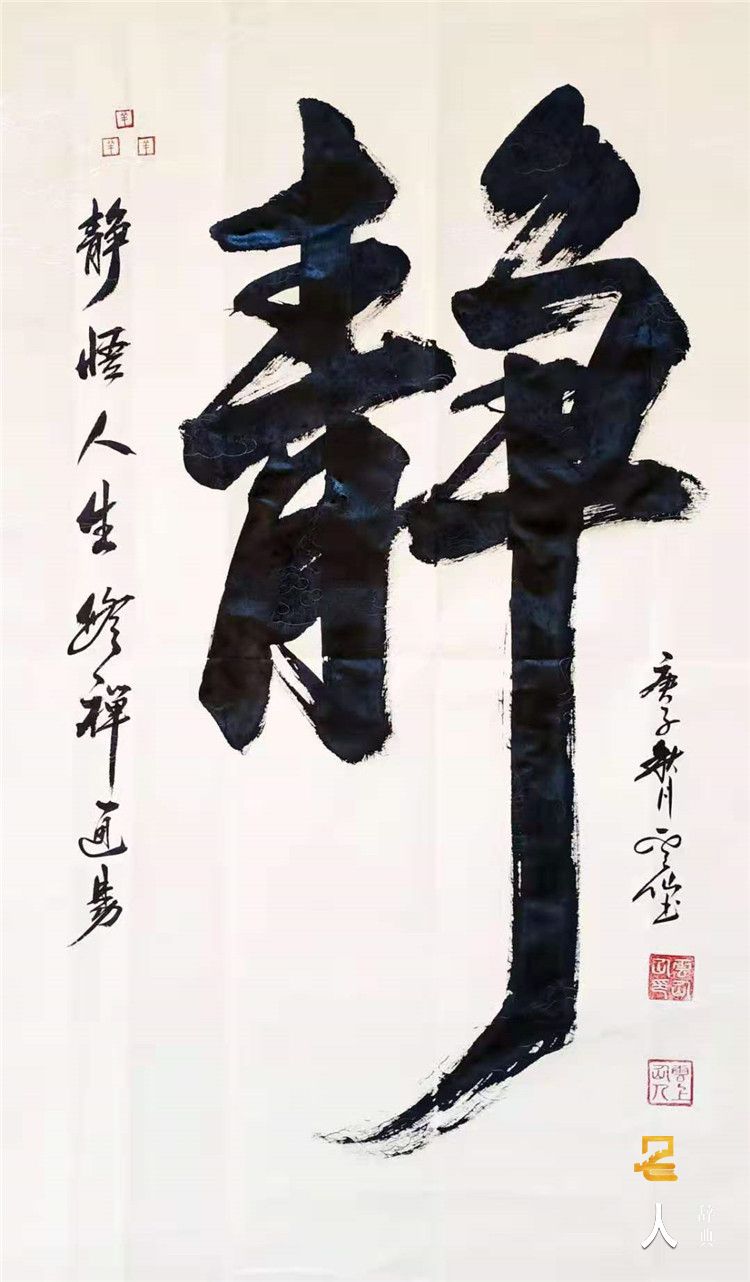 静
静悟人生 禅通易
庚子秋月
人
辞典